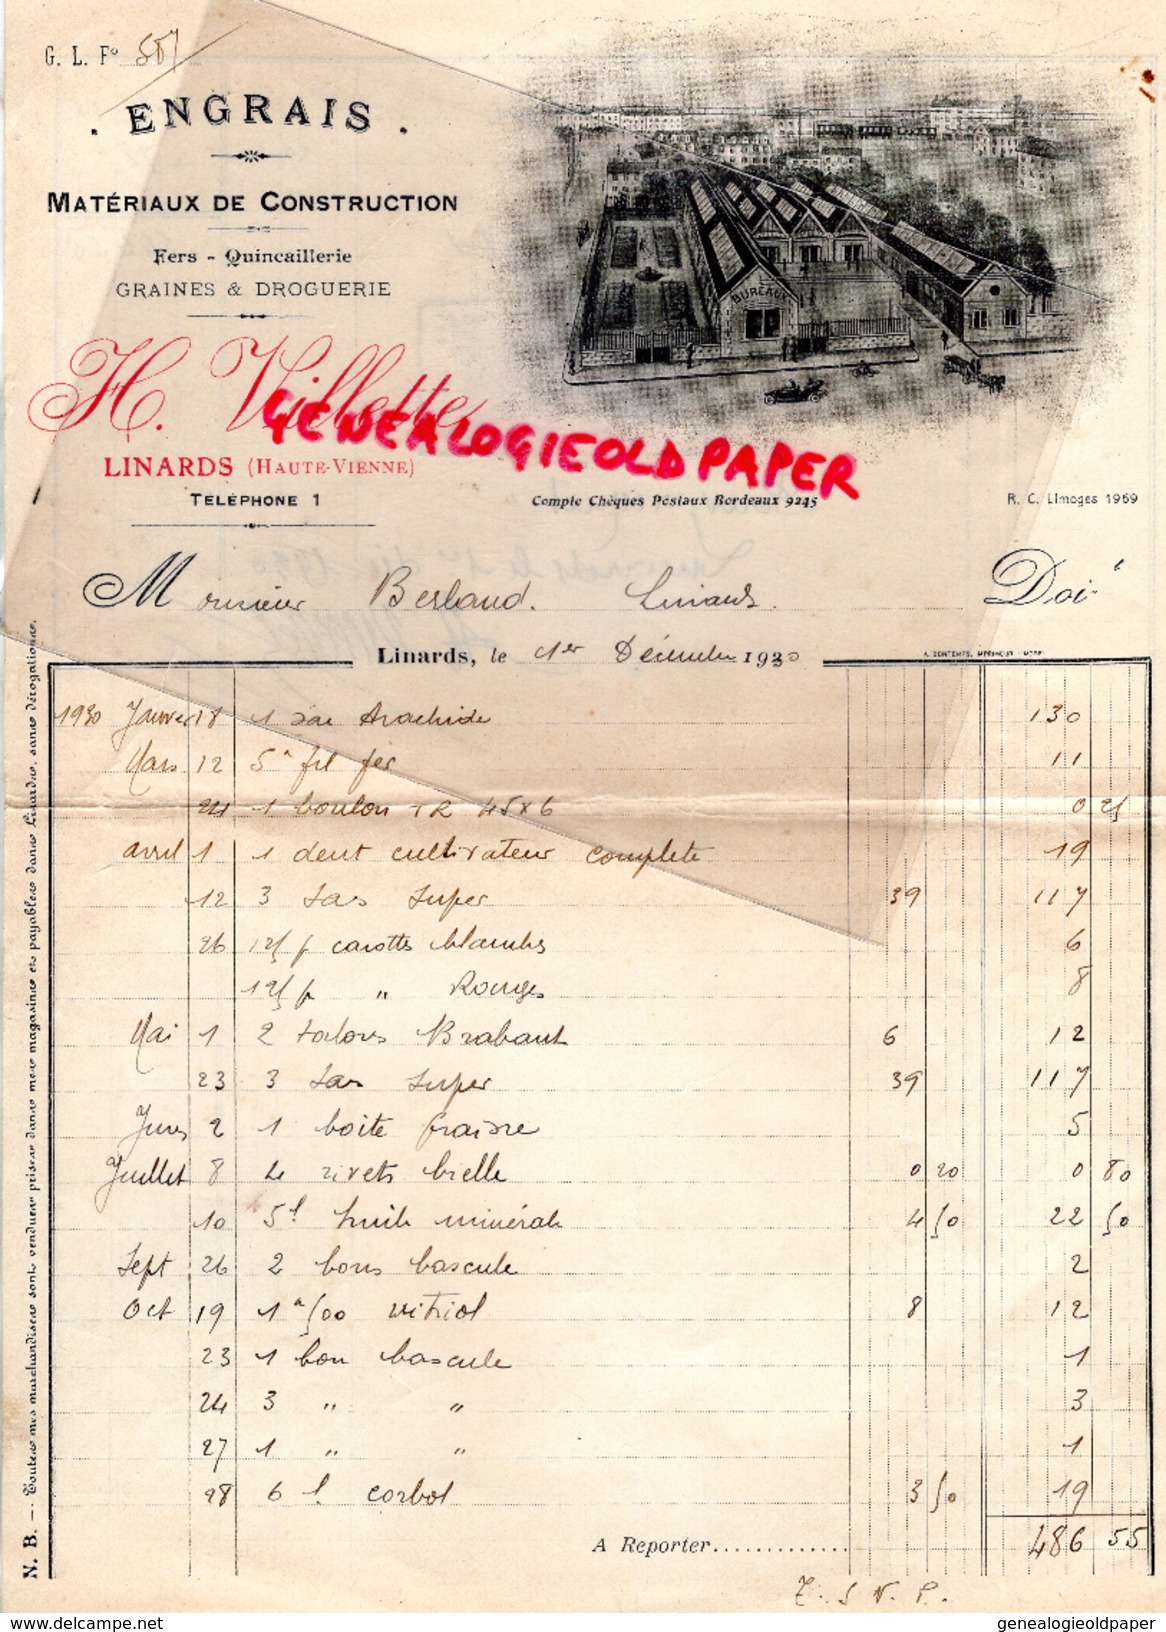 G. L. Fº 587
ENGRAIS
MATÉRIAUX DE CONSTRUCTION
Fers - Quincaillerie
GRAINES & DROGUERIE
BUREAUX
H. Villette
GENEALOGIEOLDPAPER
LINARDS (HAUTE-VIENNE)
TÉLÉPHONE 1
Compte Chèques Postaux Bordeaux 9245
R. C. Limoges 1969
Monsieur Berland. Linards. Doit
Linards, le 1er Décembre 1930
1930 Janvier 18 1 sac Arachide 130
Mars 12 5k fil fer 11
24 1 boulon TR 45x6 0 25
avril 1 1 dent cultivateur complete 19
12 3 sacs super 39 117
26 125 g carottes blanches 6
125 g " Rouges 8
Mai 1 2 talons Brabant 6 12
23 3 sacs super 39 117
Juin 2 1 boite graisse 5
Juillet 8 4 rivets bielle 0 20 0 80
10 5l huile minérale 4 50 22 50
Sept 26 2 bons bascule 2
Oct 19 1k500 vitriol 8 12
23 1 bon bascule 1
24 3 " " 3
27 1 " " 1
28 6 l. corbol 3 50 19
486 55
A Reporter.............
T. S V. P.
N. B. — Toutes mes marchandises sont vendues prises dans mes magasins et payables dans Linards, sans dérogations.
genealogieoldpaper